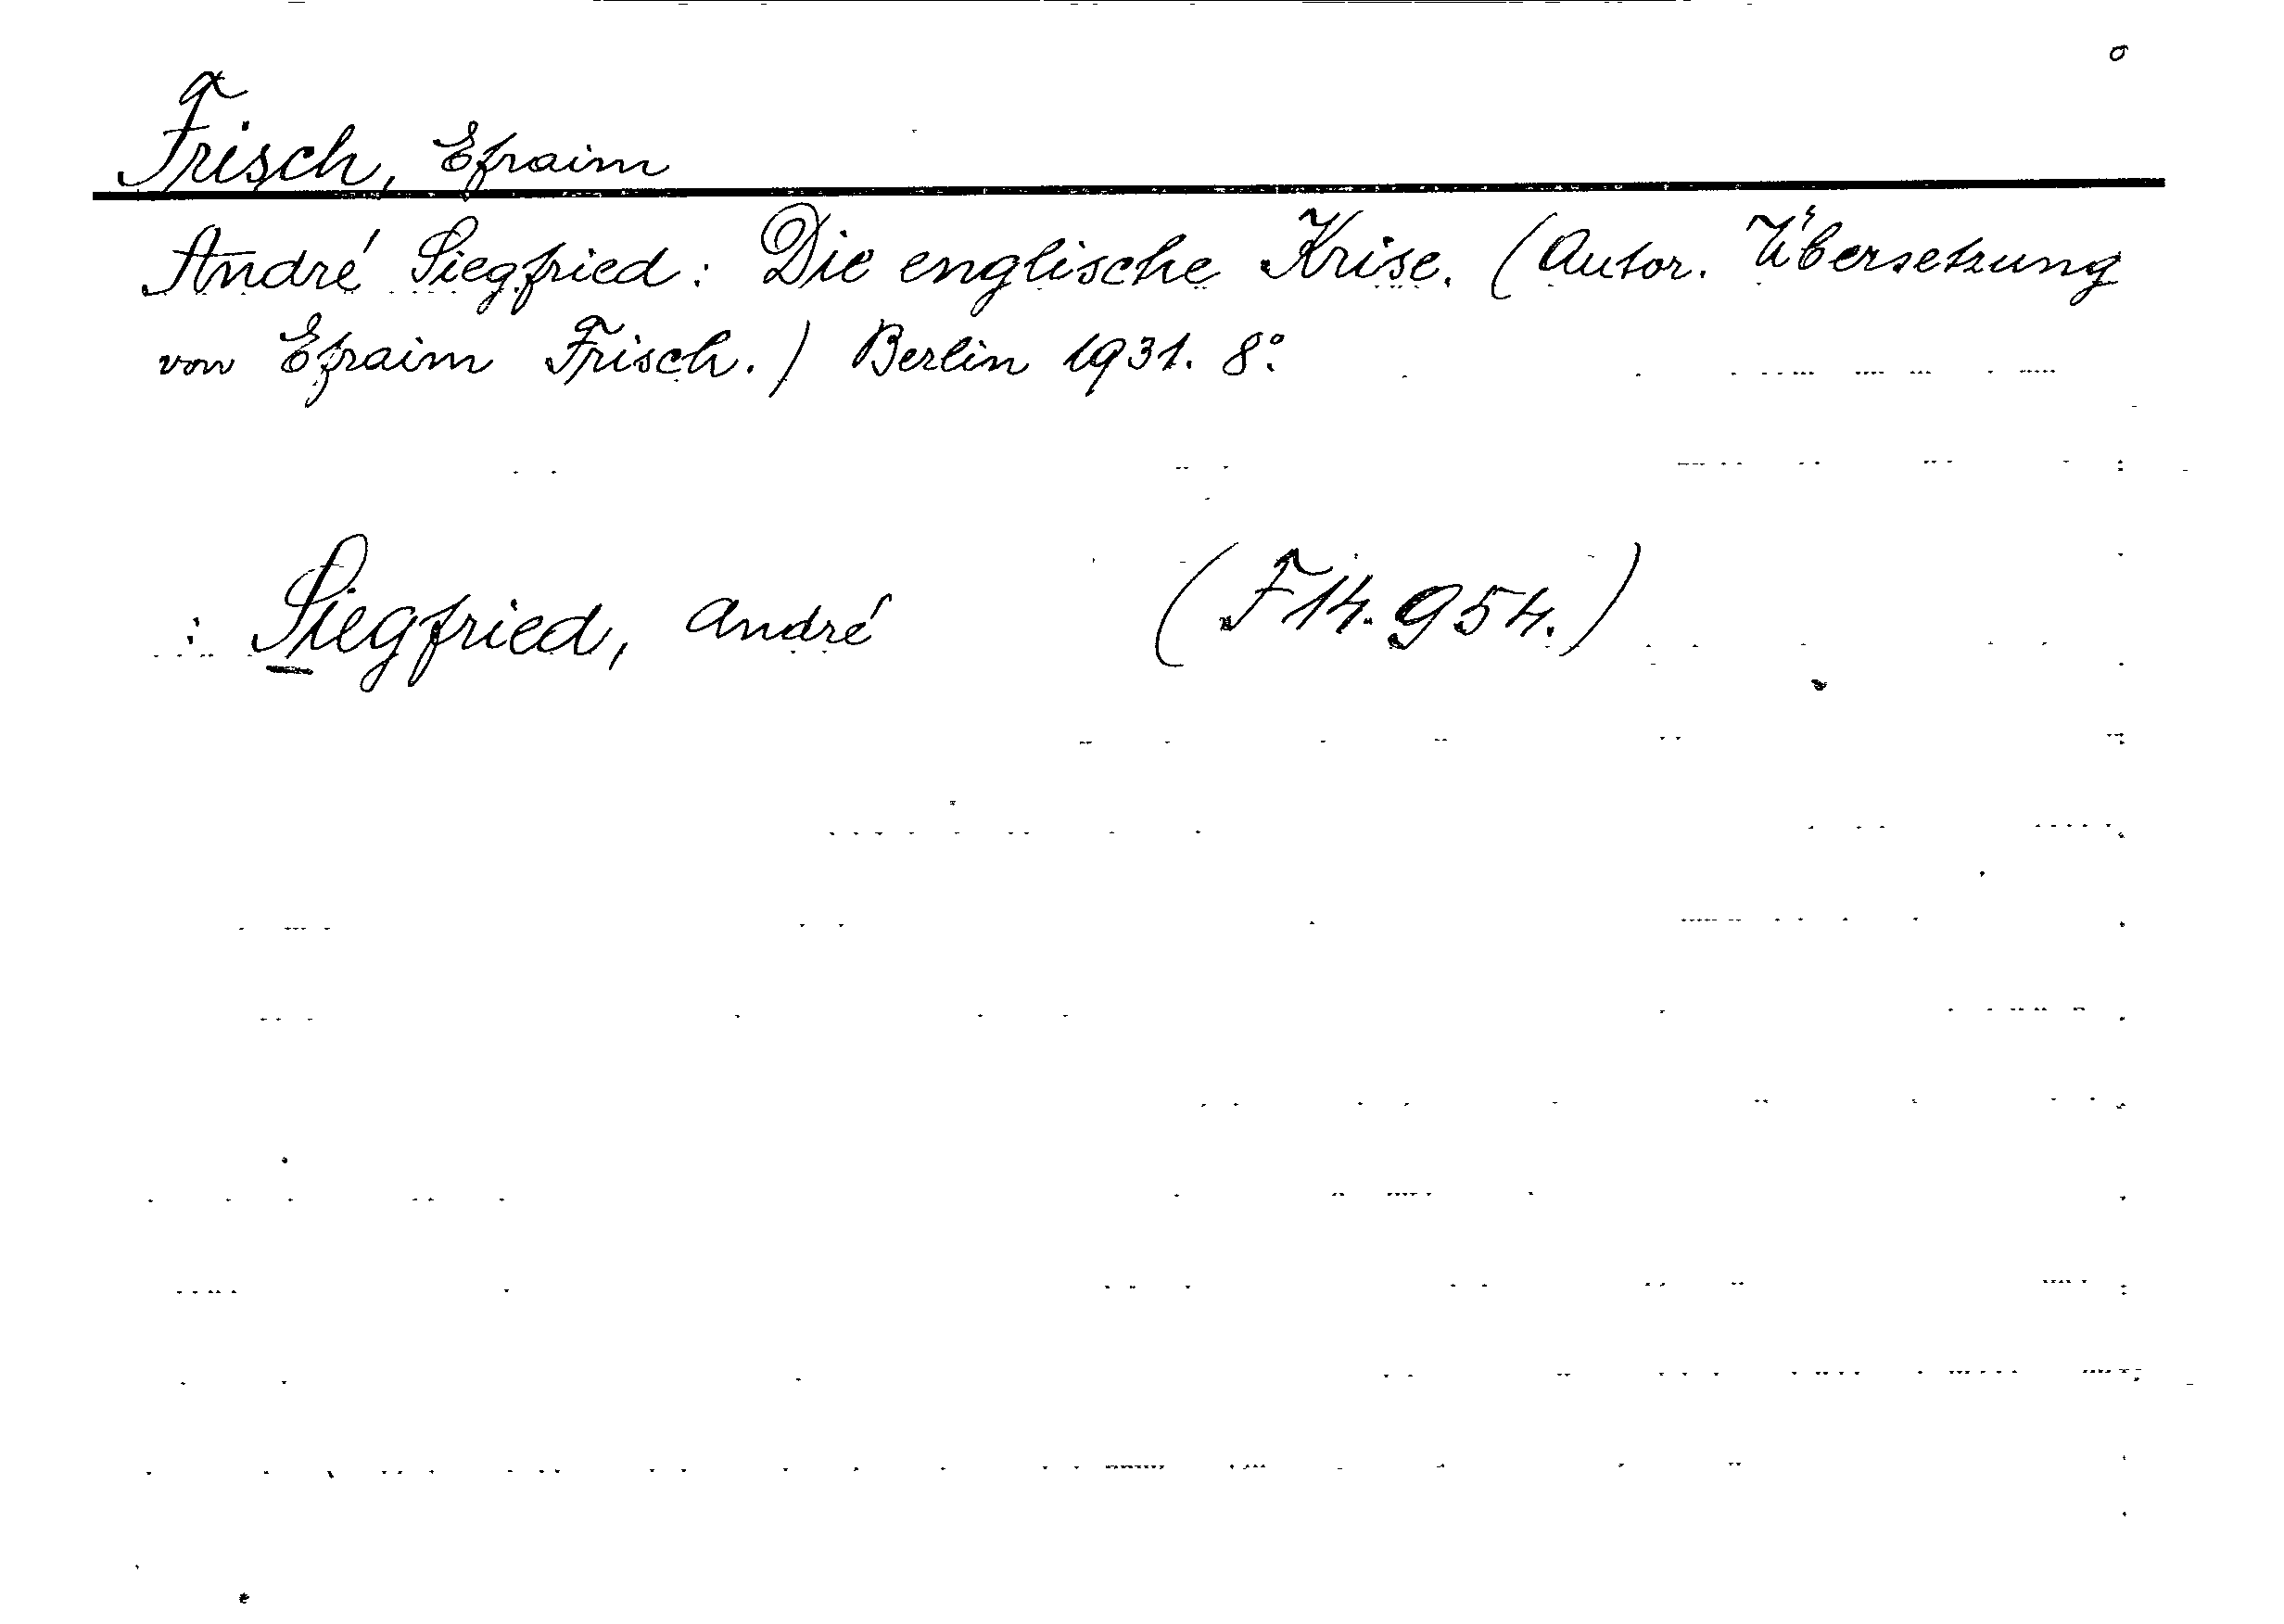 Frisch, Efraim
André Siegfried: Die englische Krise. (Autor. Übersetzung
von Efraim Frisch.) Berlin 1931. 8°.
: Siegfried, André (F 14.954.)